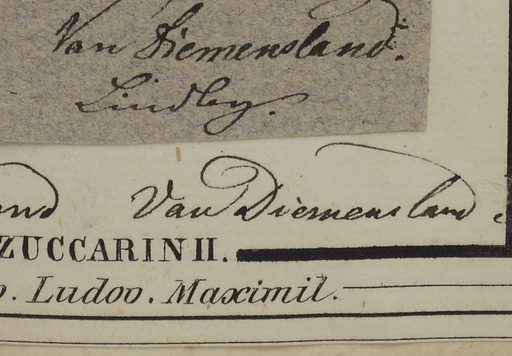 Van Diemensland.
Lindley.
Van Diemensland.
ZUCCARINII.
Ludov. Maximil.